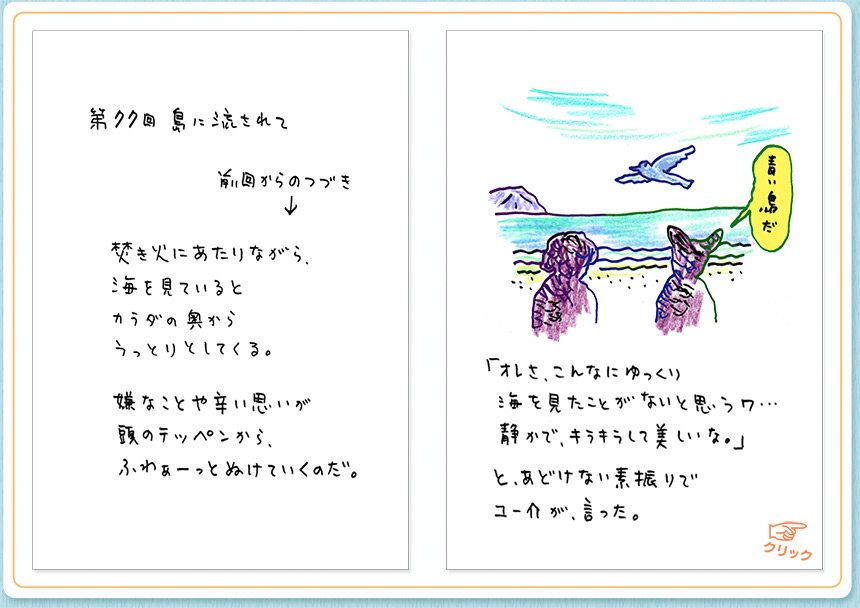 第77回 島に流されて
前回からのつづき
↓
焚き火にあたりながら、
海を見ていると
カラダの奥から
うっとりとしてくる。
嫌なことや辛い思いが
頭のテッペンから、
ふわぁーっとぬけていくのだ。
青い鳥だ
「オレさ、こんなにゆっくり
海を見たことがないと思うワ…
静かで、キラキラして美しいな。」
と、あどけない素振りで
ユー介が、言った。
クリック